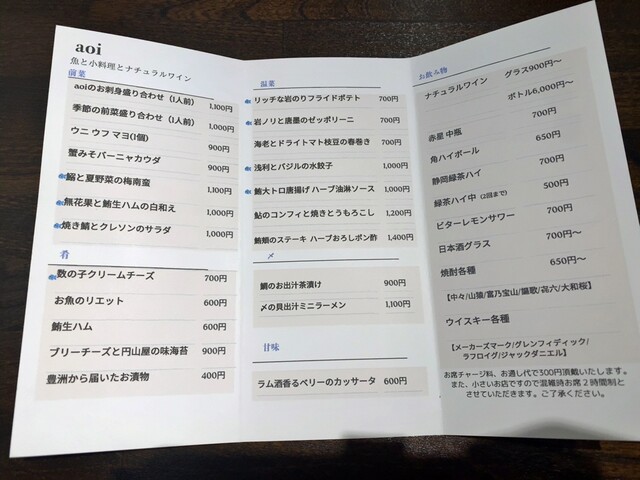 aoi
魚と小料理とナチュラルワイン
前菜
aoiのお刺身盛り合わせ（1人前） 1,100円
季節の前菜盛り合わせ（1人前） 1,000円
ウニ ウフ マヨ(1個) 900円
蟹みそバーニャカウダ 900円
鰯と夏野菜の梅南蛮 1,100円
無花果と鮪生ハムの白和え 1,000円
焼き鯖とクレソンのサラダ 1,000円
肴
数の子クリームチーズ 700円
お魚のリエット 600円
鮪生ハム 600円
ブリーチーズと円山屋の味海苔 900円
豊洲から届いたお漬物 400円
温菜
リッチな岩のりフライドポテト 700円
岩ノリと唐墨のゼッポリーニ 700円
海老とドライトマト枝豆の春巻き 700円
浅利とバジルの水餃子 1,000円
鮪大トロ唐揚げ ハーブ油淋ソース 1,000円
鮎のコンフィと焼きとうもろこし 1,200円
鮪頬のステーキ ハーブおろしポン酢 1,400円
〆
鯛のお出汁茶漬け 900円
〆の貝出汁ミニラーメン 1,100円
甘味
ラム酒香るベリーのカッサータ 600円
お飲み物
ナチュラルワイン グラス900円〜
ボトル6,000円〜
赤星 中瓶 700円
角ハイボール 650円
静岡緑茶ハイ 700円
緑茶ハイ中（2回まで） 500円
ビターレモンサワー 700円
日本酒グラス 700円〜
焼酎各種 650円〜
【中々/山猿/富乃宝山/謳歌/㐂六/大和桜】
ウイスキー各種
【メーカーズマーク/グレンフィディック/
ラフロイグ/ジャックダニエル】
お席チャージ料、お通し代で300円頂戴いたします。
また、小さいお店ですので混雑時お席２時間制と
させていただきます。ご了承ください。